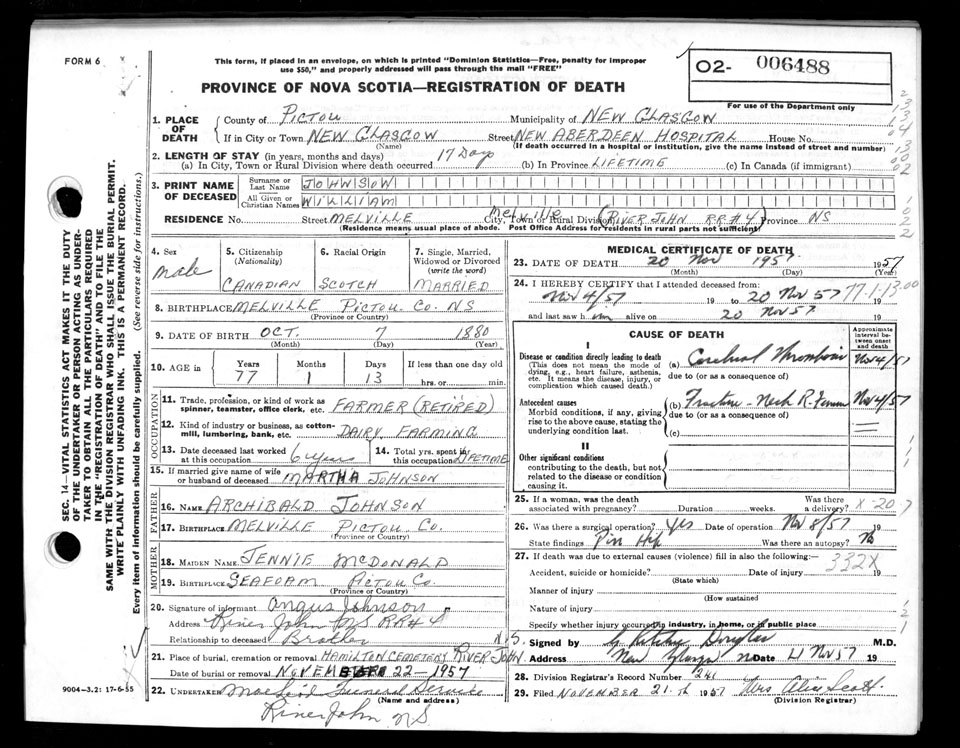 FORM 6
This form, if placed in an envelope, on which is printed "Dominion Statistics—Free, penalty for improper
use $50," and properly addressed will pass through the mail "FREE"
O2- 006488
For use of the Department only
PROVINCE OF NOVA SCOTIA—REGISTRATION OF DEATH
1. PLACE OF DEATH
County of PICTOU Municipality of NEW GLASGOW
If in City or Town NEW GLASGOW Street NEW ABERDEEN HOSPITAL House No.
(Name) (If death occurred in a hospital or institution, give the name instead of street and number)
2. LENGTH OF STAY (in years, months and days)
(a) In City, Town or Rural Division where death occurred 17 Days (b) In Province LIFETIME (c) In Canada (if immigrant)
3. PRINT NAME OF DECEASED
Surname or Last Name JOHNSON
All Given or Christian Names WILLIAM
RESIDENCE No. Street MELVILLE City, Town or Rural Division Melville (RIVER JOHN RR#4) Province NS
(Residence means usual place of abode. Post Office Address for residents in rural parts not sufficient)
4. Sex male
5. Citizenship (Nationality) CANADIAN
6. Racial Origin SCOTCH
7. Single, Married, Widowed or Divorced (write the word) MARRIED
8. BIRTHPLACE MELVILLE PICTOU Co. NS
(Province or Country)
9. DATE OF BIRTH OCT. 7 1880
(Month) (Day) (Year)
10. AGE in Years 77 Months 1 Days 13 If less than one day old
hrs. or min.
OCCUPATION
11. Trade, profession, or kind of work as
spinner, teamster, office clerk, etc. FARMER (RETIRED)
12. Kind of industry or business, as cotton-
mill, lumbering, bank, etc. DAIRY FARMING
13. Date deceased last worked
at this occupation 6 Years
14. Total yrs. spent in
this occupation LIFETIME
15. If married give name of wife
or husband of deceased MARTHA JOHNSON
FATHER
16. NAME ARCHIBALD JOHNSON
17. BIRTHPLACE MELVILLE PICTOU Co.
(Province or Country)
MOTHER
18. MAIDEN NAME JENNIE McDONALD
19. BIRTHPLACE SEAFOAM PICTOU Co.
(Province or Country)
20. Signature of informant Angus Johnson
Address River John NS RR#4
Relationship to deceased Brother
21. Place of burial, cremation or removal HAMILTON CEMETERY RIVER JOHN N.S.
Date of burial or removal NOVEMBER 22-1957
22. UNDERTAKER MacLeod Funeral Service
(Name and address)
River John NS
MEDICAL CERTIFICATE OF DEATH
23. DATE OF DEATH 20 Nov 1957 1957
(Month) (Day) (Year)
24. I HEREBY CERTIFY that I attended deceased from:
Nov 4/57 19 to 20 Nov 57 19
77-1-13.00
and last saw him alive on 20 Nov 57
CAUSE OF DEATH
Approximate interval between onset and death
I
Disease or condition directly leading to death
(This does not mean the mode of
dying, e.g., heart failure, asthenia,
etc. It means the disease, injury, or
complication which caused death.)
(a) Cerebral Thrombosis Nov 4/57
due to (or as a consequence of)
Antecedent causes
Morbid conditions, if any, giving
rise to the above cause, stating the
underlying condition last.
(b) Fracture - Neck R-Femur Nov 4/57
due to (or as a consequence of)
(c)
II
Other significant conditions
contributing to the death, but not
related to the disease or condition
causing it.
25. If a woman, was the death
associated with pregnancy? Duration weeks. Was there a delivery?
X-20
26. Was there a surgical operation? Yes Date of operation Nov 8/57 19
State findings Pin Hip Was there an autopsy? No
27. If death was due to external causes (violence) fill in also the following:—
332X
Accident, suicide or homicide? Date of injury 19
(State which)
Manner of injury
(How sustained
Nature of injury
Specify whether injury occurred in industry, in home, or in public place
Signed by Douglas M.D.
Address New Glasgow Date 21 Nov 57 19
28. Division Registrar's Record Number 241
29. Filed NOVEMBER 21-th 1957 Mrs Alice Scott.
(Division Registrar)
SEC. 14—VITAL STATISTICS ACT MAKES IT THE DUTY
OF THE UNDERTAKER OR PERSON ACTING AS UNDER-
TAKER TO OBTAIN ALL THE PARTICULARS REQUIRED
IN THE "REGISTRATION OF DEATH" AND TO FILE THE
SAME WITH THE DIVISION REGISTRAR WHO SHALL ISSUE THE BURIAL PERMIT.
WRITE PLAINLY WITH UNFADING INK. THIS IS A PERMANENT RECORD.
Every item of information should be carefully supplied. (See reverse side for instructions.)
9004—3.2: 17-6-55